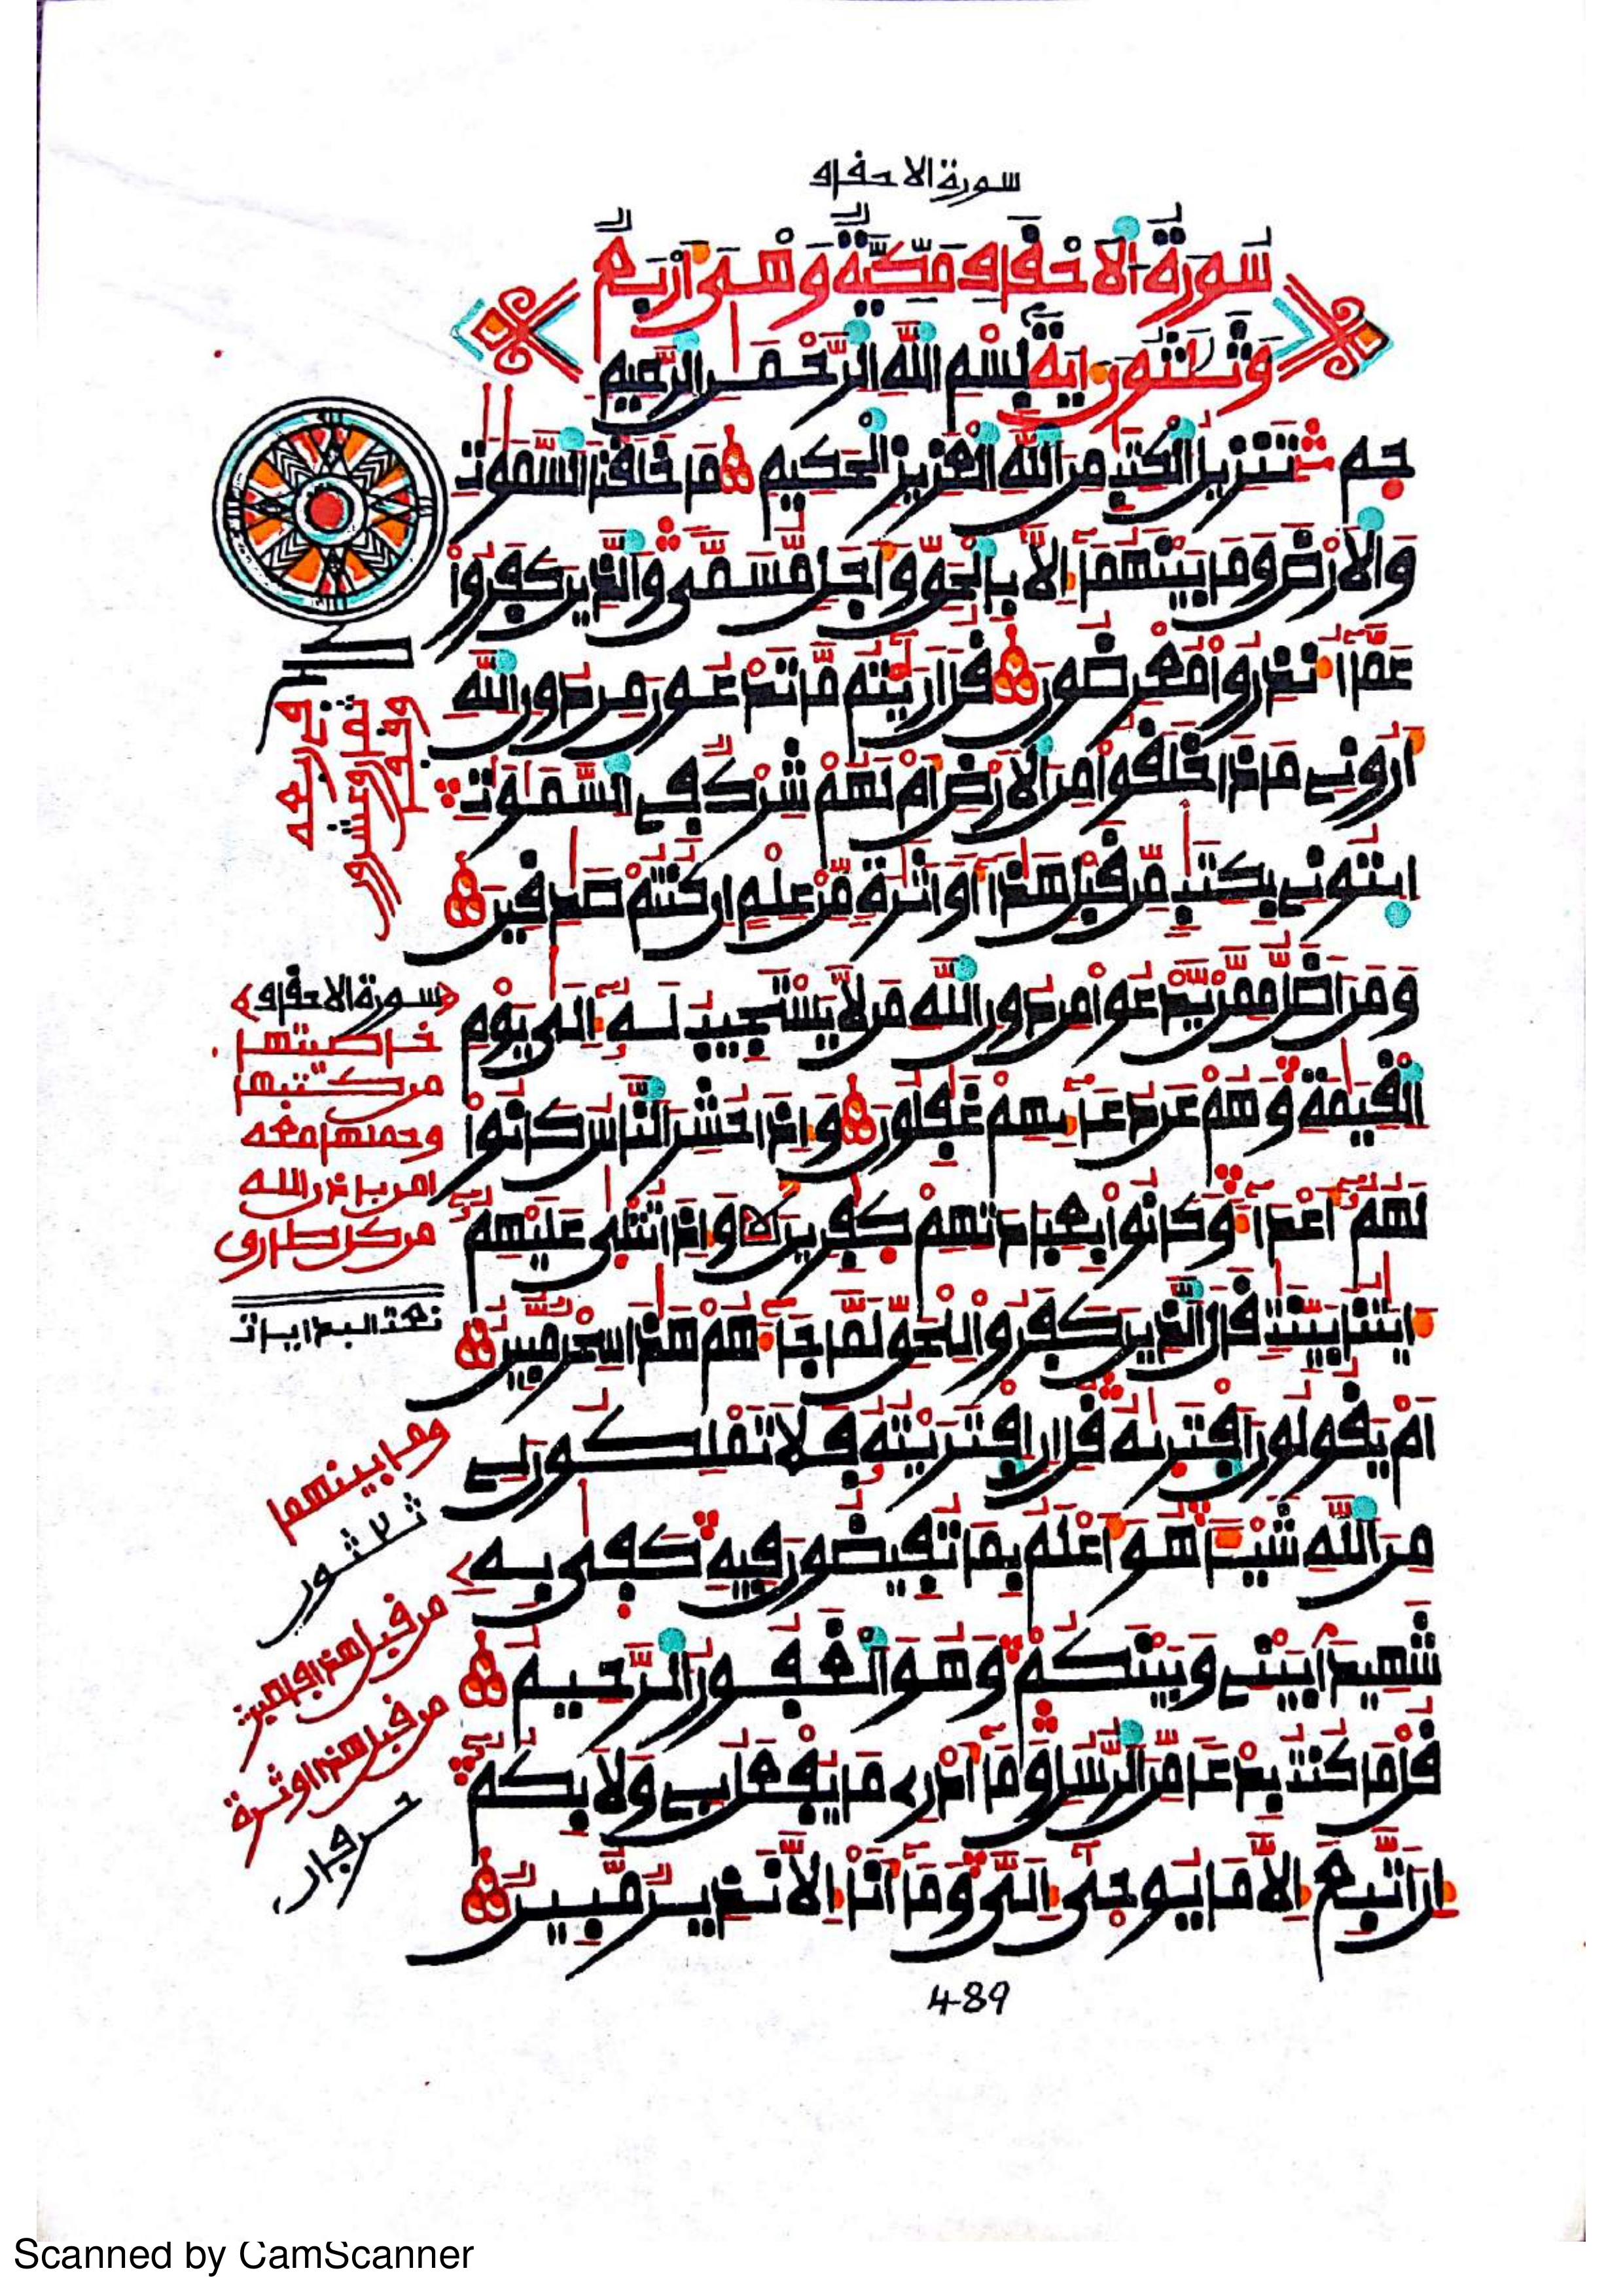 سورة الاحقاف
سُورَةُ الاَحْقَافِ مَكِّيَّةٌ وَهْىَ أَرْبَعٌ
وَثَلَٰثُونَ ءَايَةً بِسْمِ اللَّهِ الرَّحْمَٰنِ الرَّحِيمِ
حم تَنزِيلُ الْكِتَٰبِ مِنَ اللَّهِ الْعَزِيزِ الْحَكِيمِ مَا خَلَقْنَا السَّمَٰوَٰتِ
وَالاَرْضَ وَمَا بَيْنَهُمَا إِلاَّ بِالْحَقِّ وَأَجَلٍ مُّسَمًّى وَالَّذِينَ كَفَرُوا
عَمَّا أُنذِرُوا مُعْرِضُونَ قُلْ أَرَٰيْتُم مَّا تَدْعُونَ مِن دُونِ اللَّهِ
أَرُونِي مَاذَا خَلَقُوا مِنَ الاَرْضِ أَمْ لَهُمْ شِرْكٌ فِي السَّمَٰوَٰتِ
ايتُونِي بِكِتَٰبٍ مِّن قَبْلِ هَٰذَا أَوَ اَثَٰرَةٍ مِّنْ عِلْمٍ إِن كُنتُمْ صَٰدِقِينَ
وَمَنَ اَضَلُّ مِمَّنْ يَّدْعُوا مِن دُونِ اللَّهِ مَن لاَّ يَسْتَجِيبُ لَهُ إِلَىٰ يَوْمِ
الْقِيَٰمَةِ وَهُمْ عَن دُعَائِهِمْ غَٰفِلُونَ وَإِذَا حُشِرَ النَّاسُ كَانُوا
لَهُمُ أَعْدَاءً وَكَانُوا بِعِبَادَتِهِمْ كَٰفِرِينَ وَإِذَا تُتْلَىٰ عَلَيْهِمُ
ءَايَٰتُنَا بَيِّنَٰتٍ قَالَ الَّذِينَ كَفَرُوا لِلْحَقِّ لَمَّا جَاءَهُمْ هَٰذَا سِحْرٌ مُّبِينٌ
أَمْ يَقُولُونَ اَفْتَرَىٰهُ قُلِ انِ افْتَرَيْتُهُ فَلاَ تَمْلِكُونَ لِي
مِنَ اللَّهِ شَيْـًٔا هُوَ أَعْلَمُ بِمَا تُفِيضُونَ فِيهِ كَفَىٰ بِهِ
شَهِيدًا بَيْنِي وَبَيْنَكُمْ وَهُوَ الْغَفُورُ الرَّحِيمُ
قُلْ مَا كُنتُ بِدْعًا مِّنَ الرُّسُلِ وَمَا أَدْرِي مَا يُفْعَلُ بِي وَلاَ بِكُمُ
إِنَ اَتَّبِعُ إِلاَّ مَا يُوحَىٰ إِلَيَّ وَمَا أَنَا إِلاَّ نَذِيرٌ مُّبِينٌ
سورة الاحقاف
خاصيتها
من كتبها
وحملها معه
امن باذن الله
من كل طارق
تمت البدايات
وما بينهما
ثلاثون
489
Scanned by CamScanner